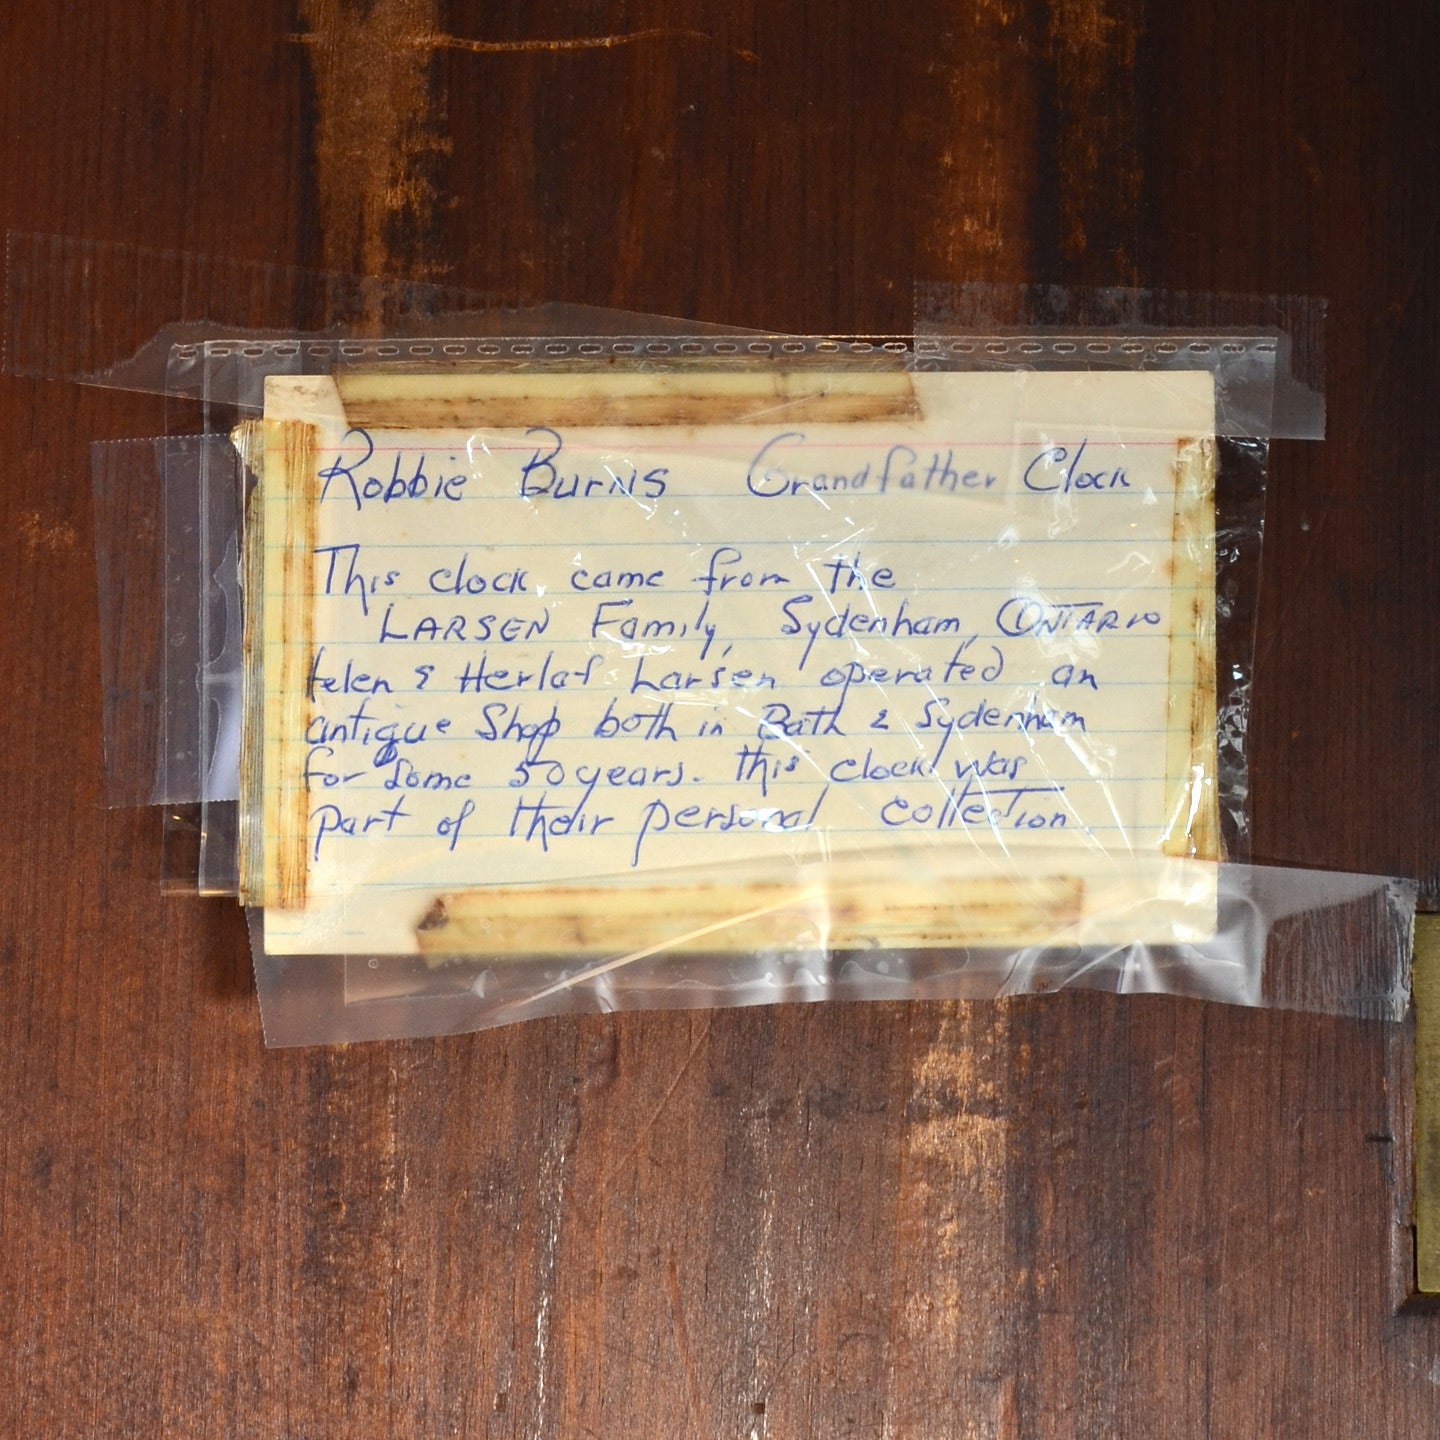 Robbie Burns Grandfather Clock
This clock came from the
LARSEN Family, Sydenham, ONTARIO
Helen & Herlaf Larsen operated an
antique Shop both in Bath & Sydenham
for some 50 years. This clock was
part of their personal collection.